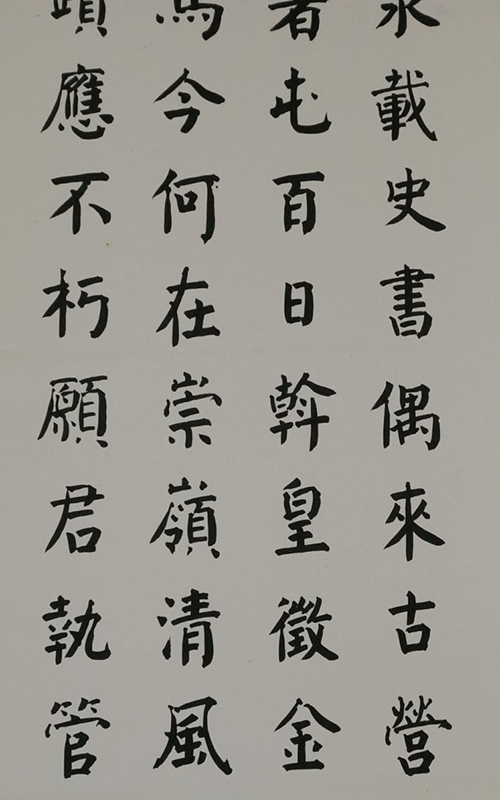 永載史書偶來古營
者屯百日斡皇徵金
馬今何在崇嶺清風
應不朽願君執管